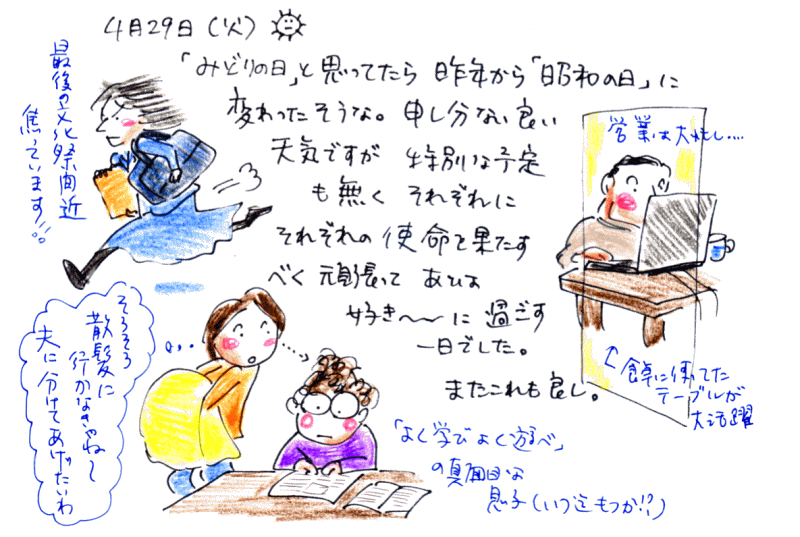 4月29日(火)
「みどりの日」と思ってたら 昨年から「昭和の日」に
変わったそうな。申し分ない良い
天気ですが 特別な予定
も無く それぞれに
それぞれの使命を果たす
べく 頑張って あるいは
好き〜〜に 過ごす
一日でした。
またこれも良し。
最後の文化祭間近
焦っています!!
営業は大忙し....
↑食卓に使ってた
テーブルが
大活躍
そろそろ
散髪に
行かなきゃね〜
夫に分けてあげたいわ
「よく学びよく遊べ」
の真面目な
息子(いつ迄もつか!?)